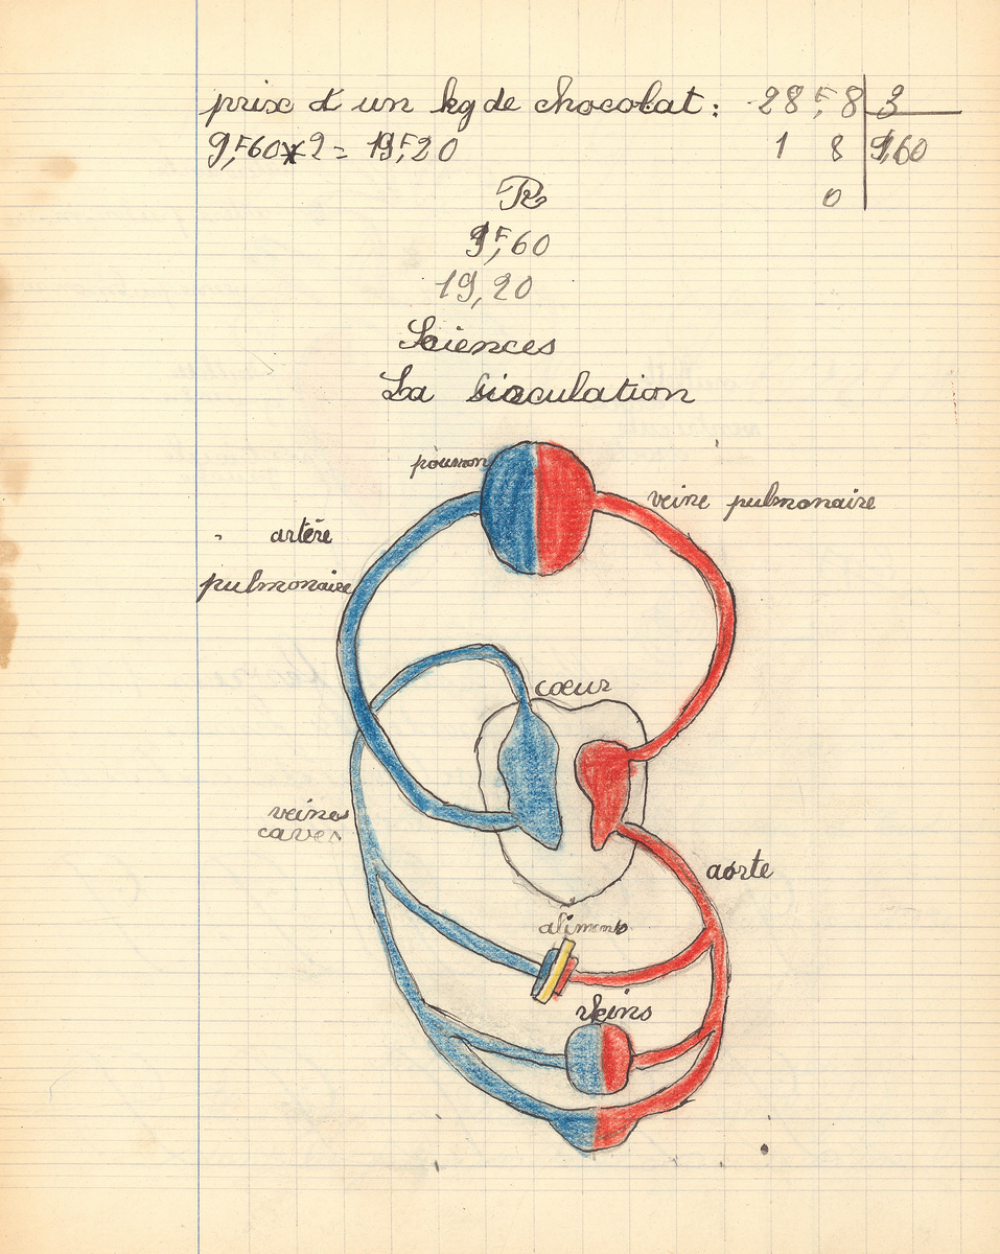 prix d'un kg de chocolat : 28F,8 | 3
9F,60 x 2 = 19F,20 1 8 | 9,60
0
R
9F,60
19,20
Sciences
La circulation
poumon
veine pulmonaire
artère
pulmonaire
cœur
veines
caves
aorte
aliments
reins